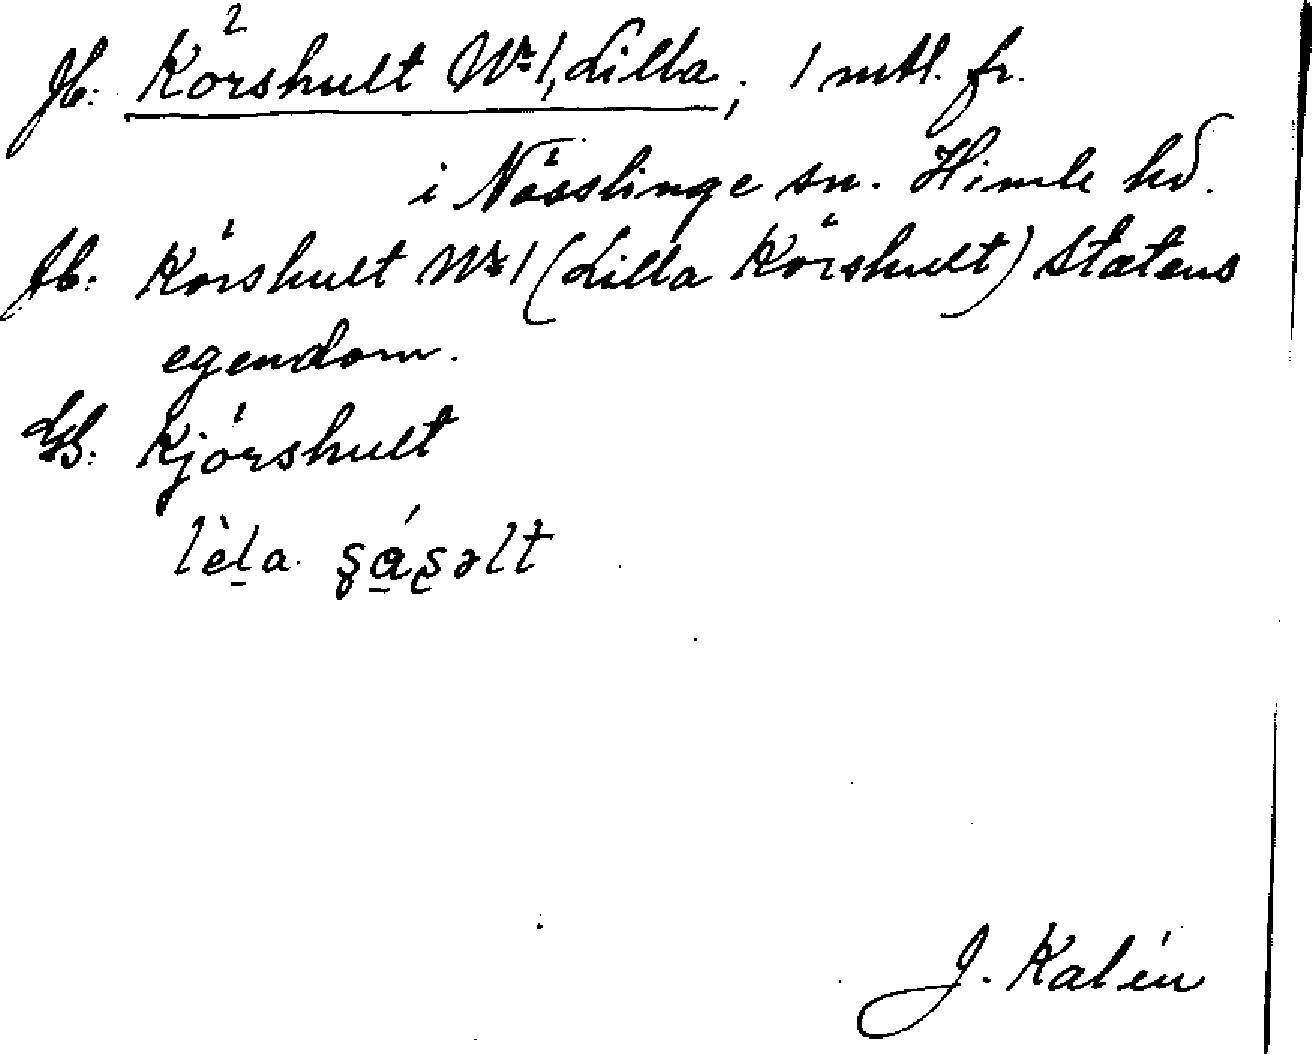 Jb: Körshult Nr 1, Lilla; 1 mtl. fr.
i Nösslinge sn. Himle hd.
Jb: Körshult Nr 1 (Lilla Körshult) Statens
egendom.
Gs: Kjörshult
J. Kalén